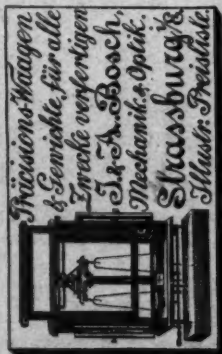 Präcisions-Waagen
& Gewichte für alle
Zwecke verfertigen
J. & A. Bosch,
Mechanik & Optik.
Strassburg i/E.
Illustr. Preisliste.